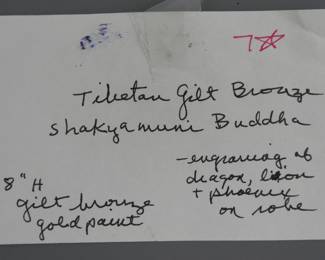 7☆
Tibetan Gilt Bronze
Shakyamuni Buddha
- engraving of
dragon, lion
+ phoenix
on robe
8" H
gilt bronze
gold paint